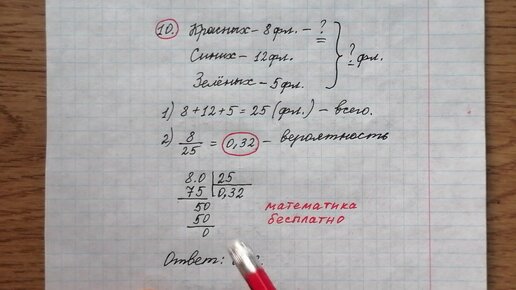 10. Красных – 8 фл. – ?
Синих – 12 фл. ? фл.
Зелёных – 5 фл.
1) 8 + 12 + 5 = 25 (фл.) – всего.
2) 8/25 = 0,32 – вероятность
8.0 25
75 0,32
50
50
0
математика
бесплатно
Ответ: